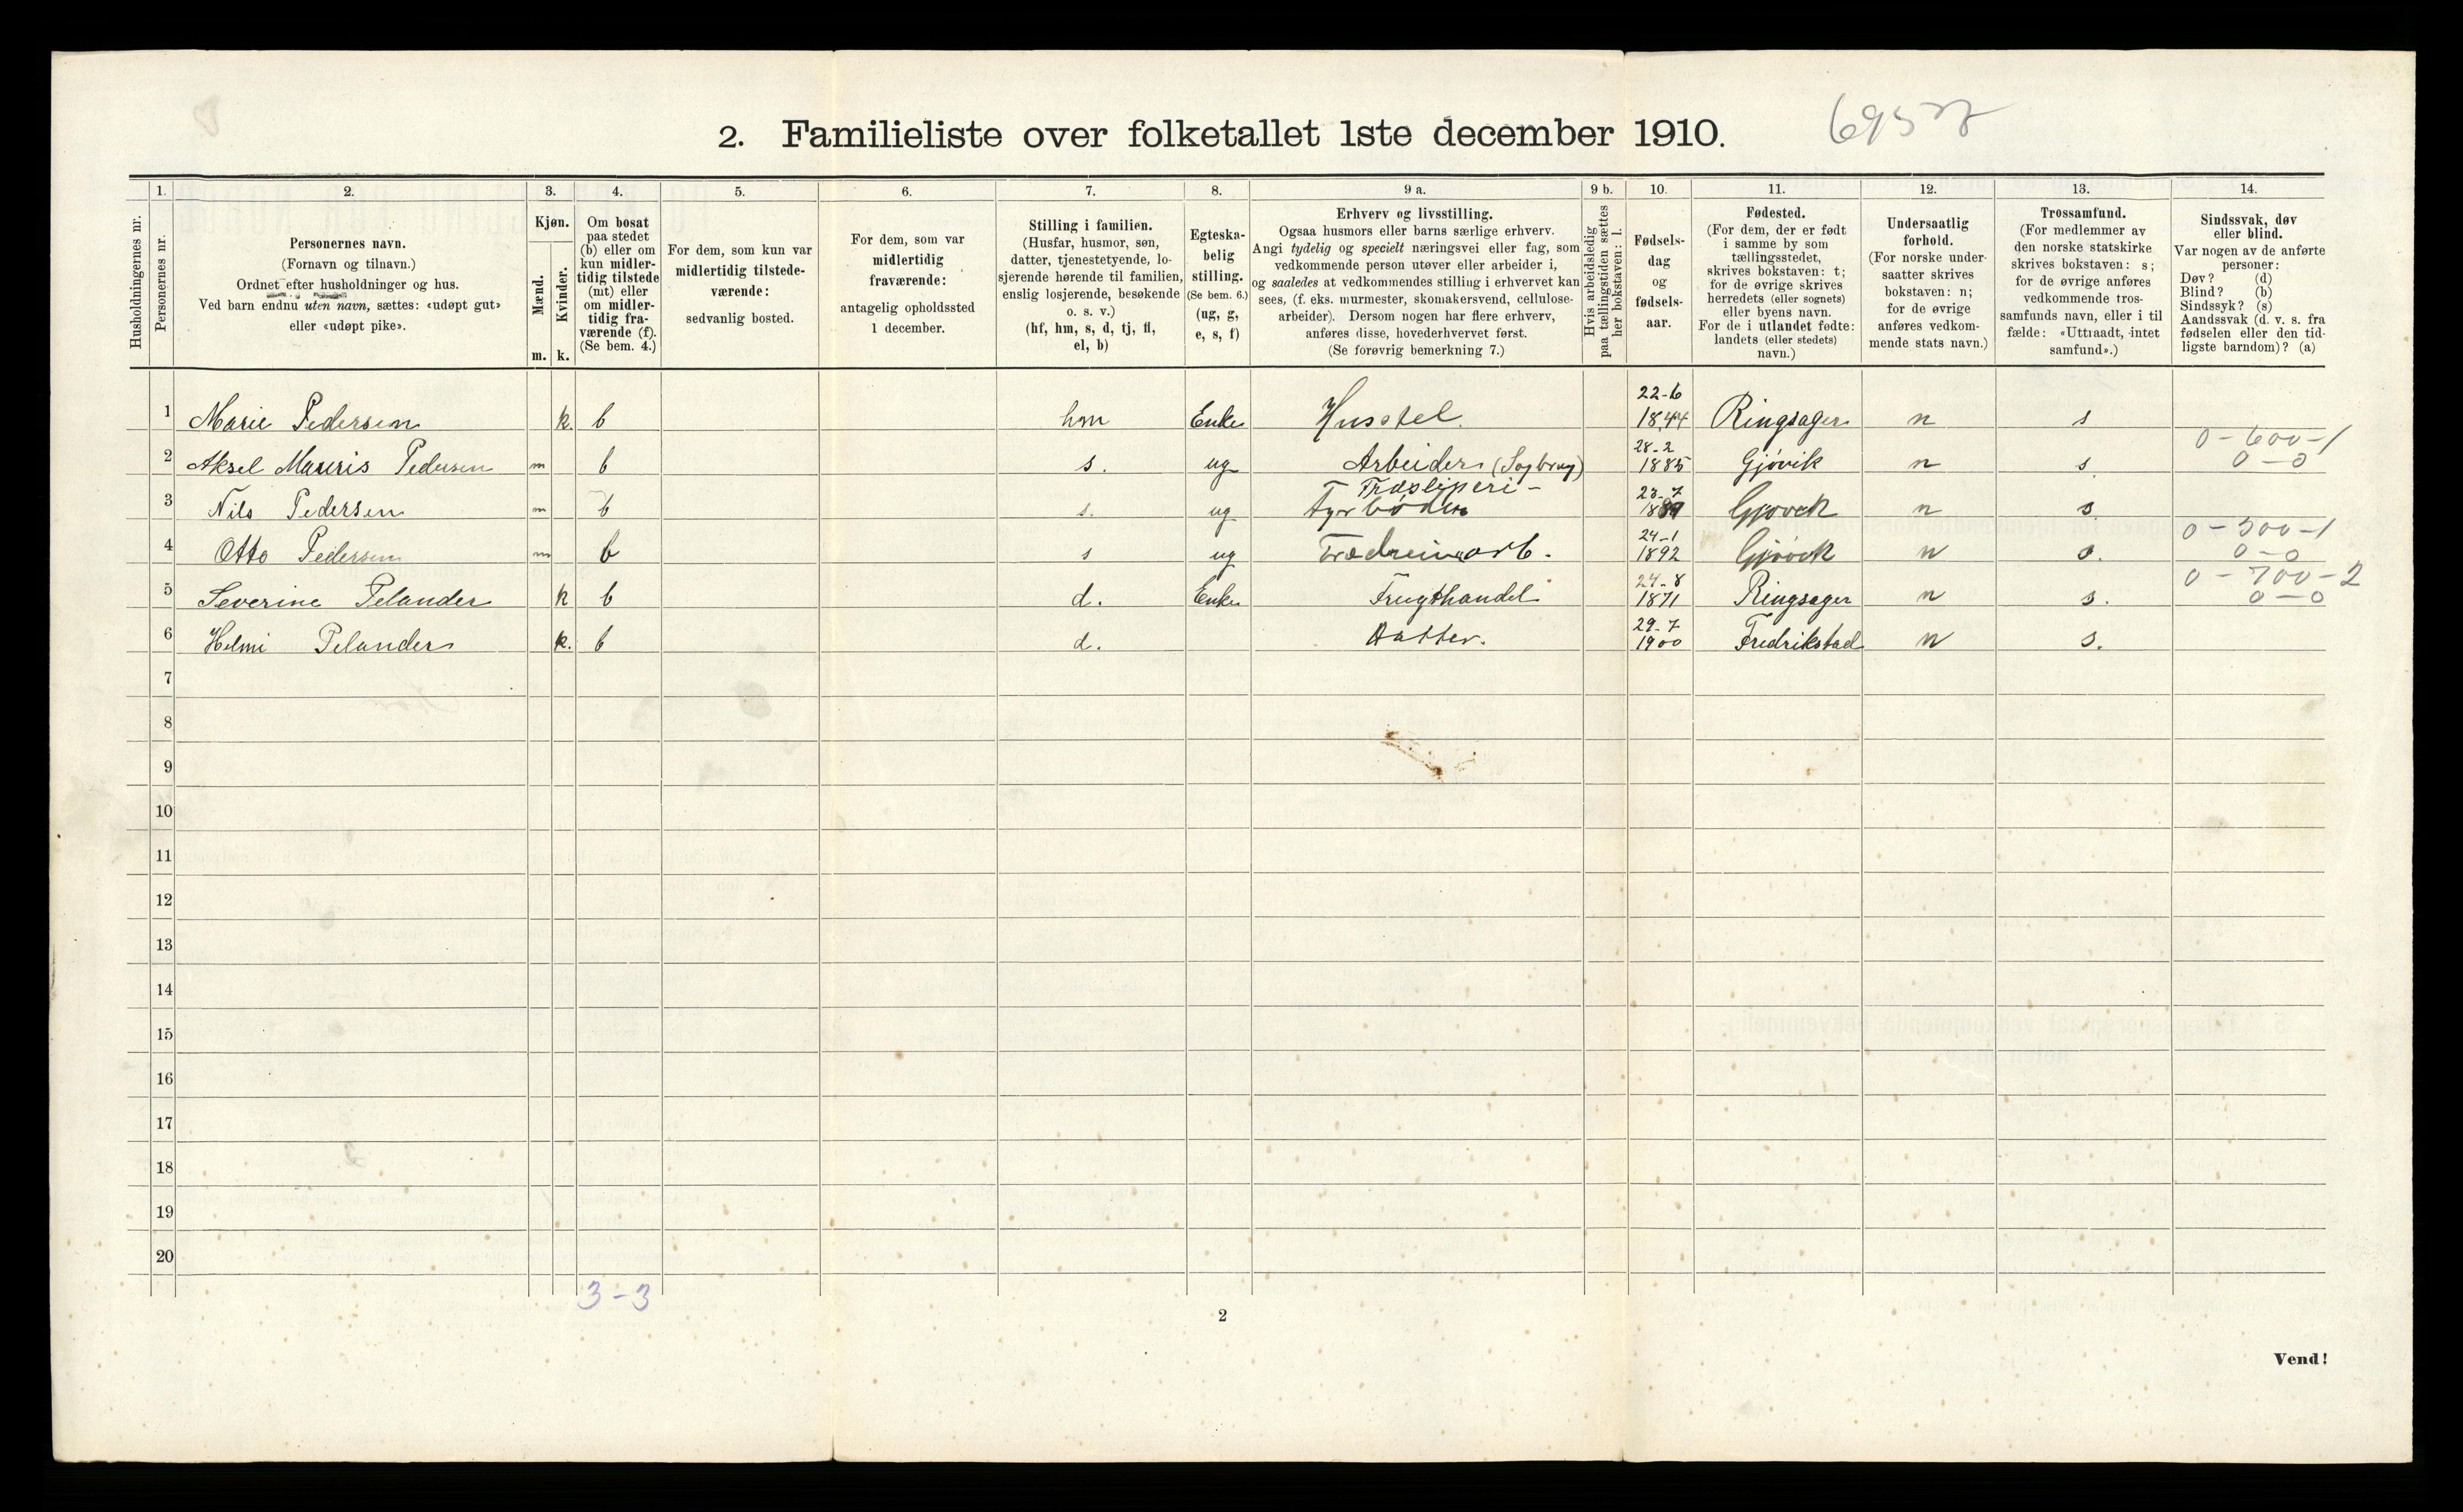 2. Familieliste over folketallet 1ste december 1910.
1. 2. 3. 4. 5. 6. 7. 8. 9 a. 9 b. 10. 11. 12. 13. 14.
Husholdningernes nr.
Personernes nr.
Personernes navn.
(Fornavn og tilnavn.)
Ordnet efter husholdninger og hus.
Ved barn endnu uten navn, sættes: «udøpt gut»
eller «udøpt pike».
Kjøn.
Mænd.
Kvinder.
m. k.
Om bosat
paa stedet
(b) eller om
kun midler-
tidig tilstede
(mt) eller
om midler-
tidig fra-
værende (f).
(Se bem. 4.)
For dem, som kun var
midlertidig tilstede-
værende:
sedvanlig bosted.
For dem, som var
midlertidig
fraværende:
antagelig opholdssted
1 december.
Stilling i familien.
(Husfar, husmor, søn,
datter, tjenestetyende, lo-
sjerende hørende til familien,
enslig losjerende, besøkende
o. s. v.)
(hf, hm, s, d, tj, fl,
el, b)
Egteska-
belig
stilling.
(Se bem. 6.)
(ug, g,
e, s, f)
Erhverv og livsstilling.
Ogsaa husmors eller barns særlige erhverv.
Angi tydelig og specielt næringsvei eller fag, som
vedkommende person utøver eller arbeider i,
og saaledes at vedkommendes stilling i erhvervet kan
sees, (f. eks. murmester, skomakersvend, cellulose-
arbeider). Dersom nogen har flere erhverv,
anføres disse, hovederhvervet først.
(Se forøvrig bemerkning 7.)
Hvis arbeidsledig
paa tællingstiden sættes
her bokstaven: l.
Fødsels-
dag
og
fødsels-
aar.
Fødested.
(For dem, der er født
i samme by som
tællingsstedet,
skrives bokstaven: t;
for de øvrige skrives
herredets (eller sognets)
eller byens navn.
For de i utlandet fødte:
landets (eller stedets)
navn.)
Undersaatlig
forhold.
(For norske under-
saatter skrives
bokstaven: n;
for de øvrige
anføres vedkom-
mende stats navn.)
Trossamfund.
(For medlemmer av
den norske statskirke
skrives bokstaven: s;
for de øvrige anføres
vedkommende tros-
samfunds navn, eller i til
fælde: «Uttraadt, intet
samfund».)
Sindssvak, døv
eller blind.
Var nogen av de anførte
personer:
Døv? (d)
Blind? (b)
Sindssyk? (s)
Aandssvak (d. v. s. fra
fødselen eller den tid-
ligste barndom)? (a)
22-6
1 Marie Pedersen k. b hm Enke Husstel. 1844 Ringsager n s
28-2 0-600-1
2 Aksel Mauris Pedersen m b s. ug Arbeider (Sagbrug) 1885 Gjøvik n s 0-0
Træsliperi - 23-7
3 Nils Pedersen m b s. ug Fyrbøder n s
24-1 0-300-1
4 Otto Pedersen m b s ug 1892 Gjøvik n s. 0-0
24-8 0-700-2
5 Severine Pelander k b d. Enke Frugthandel 1871 Ringsager n s. 0-0
29-7
6 Helmi Pelander k. b d. Datter. 1900 Fredrikstad n s.
7
8
9
10
11
12
13
14
15
16
17
18
19
20
3-3
2
Vend!